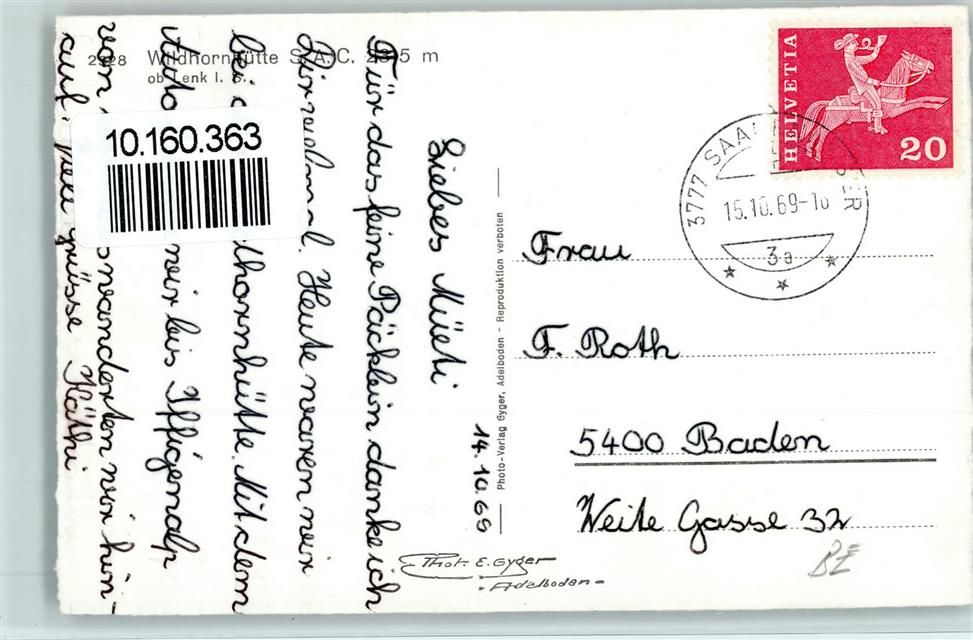 2928 Wildhornhütte S.A.C. 2315 m
ob Lenk i. S.
10.160.363
14.10.69
Liebes Müeti
Für das feine Päcklein danke ich
Dir vielmal. Heute waren wir
bei d thornhütte. Mit dem
Auto wir bis Iffigenalp
von wanderten wir hin-
auf. Viele Grüsse Käthi
Photo-Verlag Gyger, Adelboden - Reproduktion verboten
Phot. E. Gyger
Adelboden
HELVETIA
20
3777 SAA
15.10.69-10
3a
Frau
F. Roth
5400 Baden
Weite Gasse 32
BE